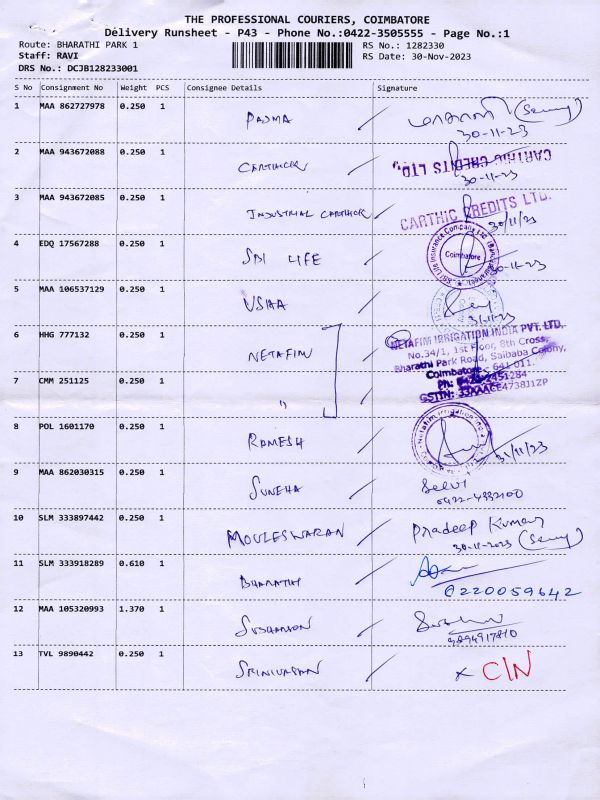 THE PROFESSIONAL COURIERS, COIMBATORE
Delivery Runsheet - P43 - Phone No.:0422-3505555 - Page No.:1
Route: BHARATHI PARK 1
RS No.: 1282330
Staff: RAVI
RS Date: 30-Nov-2023
DRS No.: DCJB128233001
S No Consignment No Weight PCS Consignee Details Signature
1 MAA 862727978 0.250 1 PADMA / (Secury)
30-11-23
2 MAA 943672088 0.250 1 CARTHICK / CARTHIC CREDITS LTD.
30-11-23
3 MAA 943672085 0.250 1 INDUSTRIAL CARTHICK / CARTHIC CREDITS LTD.
30/11/23
4 EDQ 17567288 0.250 1 SBI LIFE / SBI Life Insurance Company Ltd
Coimbatore
30-11-23
5 MAA 106537129 0.250 1 USHA /
6 HHG 777132 0.250 1 NETAFIM / NETAFIM IRRIGATION INDIA PVT. LTD.
No.34/1, 1st Floor, 8th Cross,
Bharathi Park Road, Saibaba Colony,
Coimbatore - 641 011.
7 CMM 251125 0.250 1 " /
8 POL 1601170 0.250 1 RAMESH / Netafim Irrigation India
9 MAA 862030315 0.250 1 SUNEHA / Selvi
10 SLM 333897442 0.250 1 MOULESWARAN / Pradeep Kumar
30-11-2023 (Secury)
11 SLM 333918289 0.610 1 BHARATHI /
8220059642
12 MAA 105320993 1.370 1 /
9894917810
13 TVL 9890442 0.250 1 SRINIVASAN / x C/N